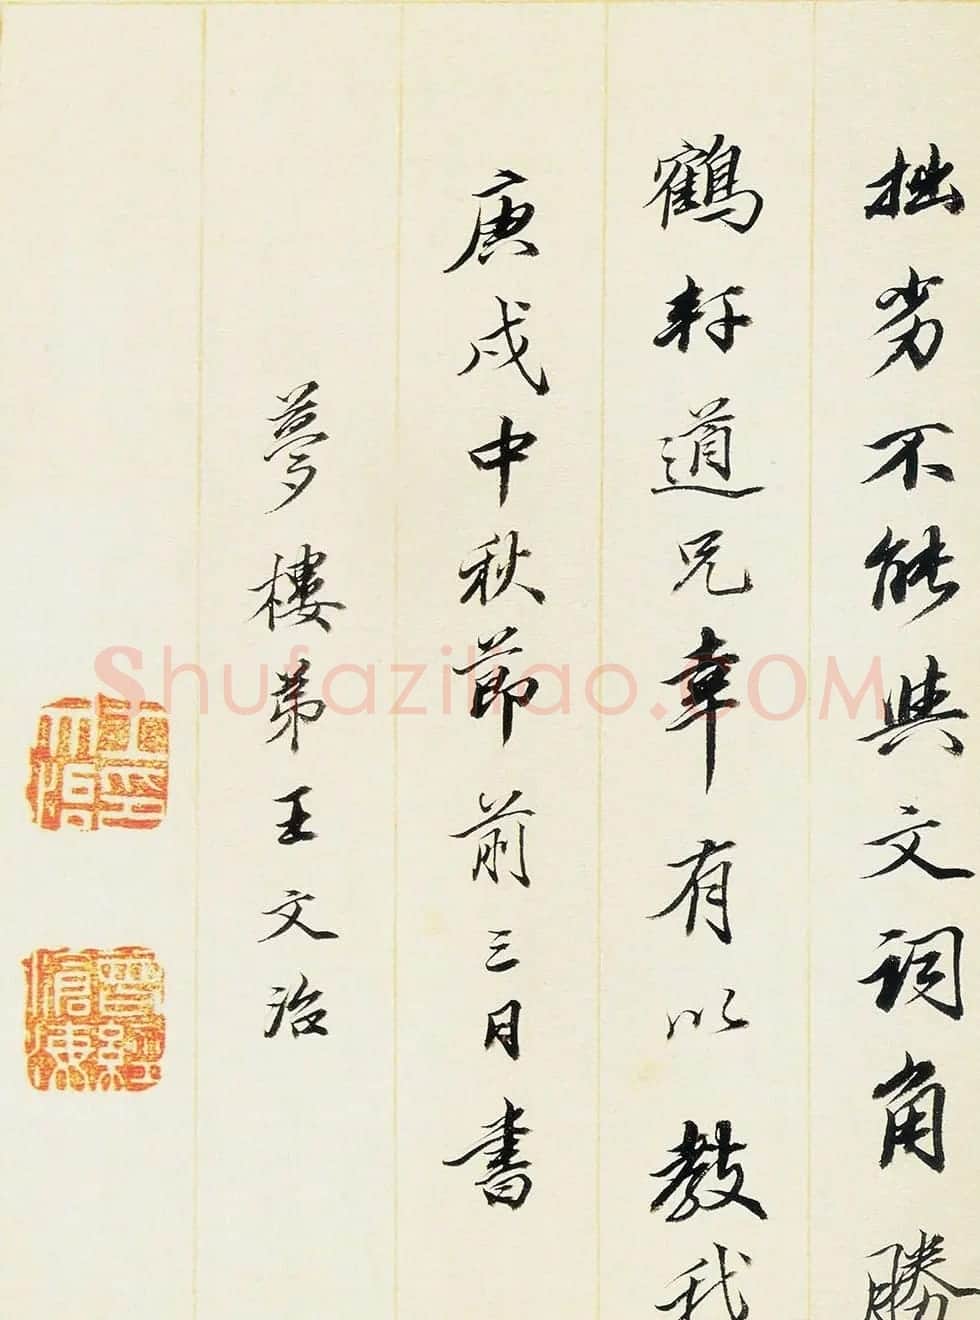 拙劣不能與文詞角勝
鶴軒道兄幸有以教我
庚戌中秋節前三日書
夢樓弟王文治
王文治印
曾經滄海
Shufaziliao.COM